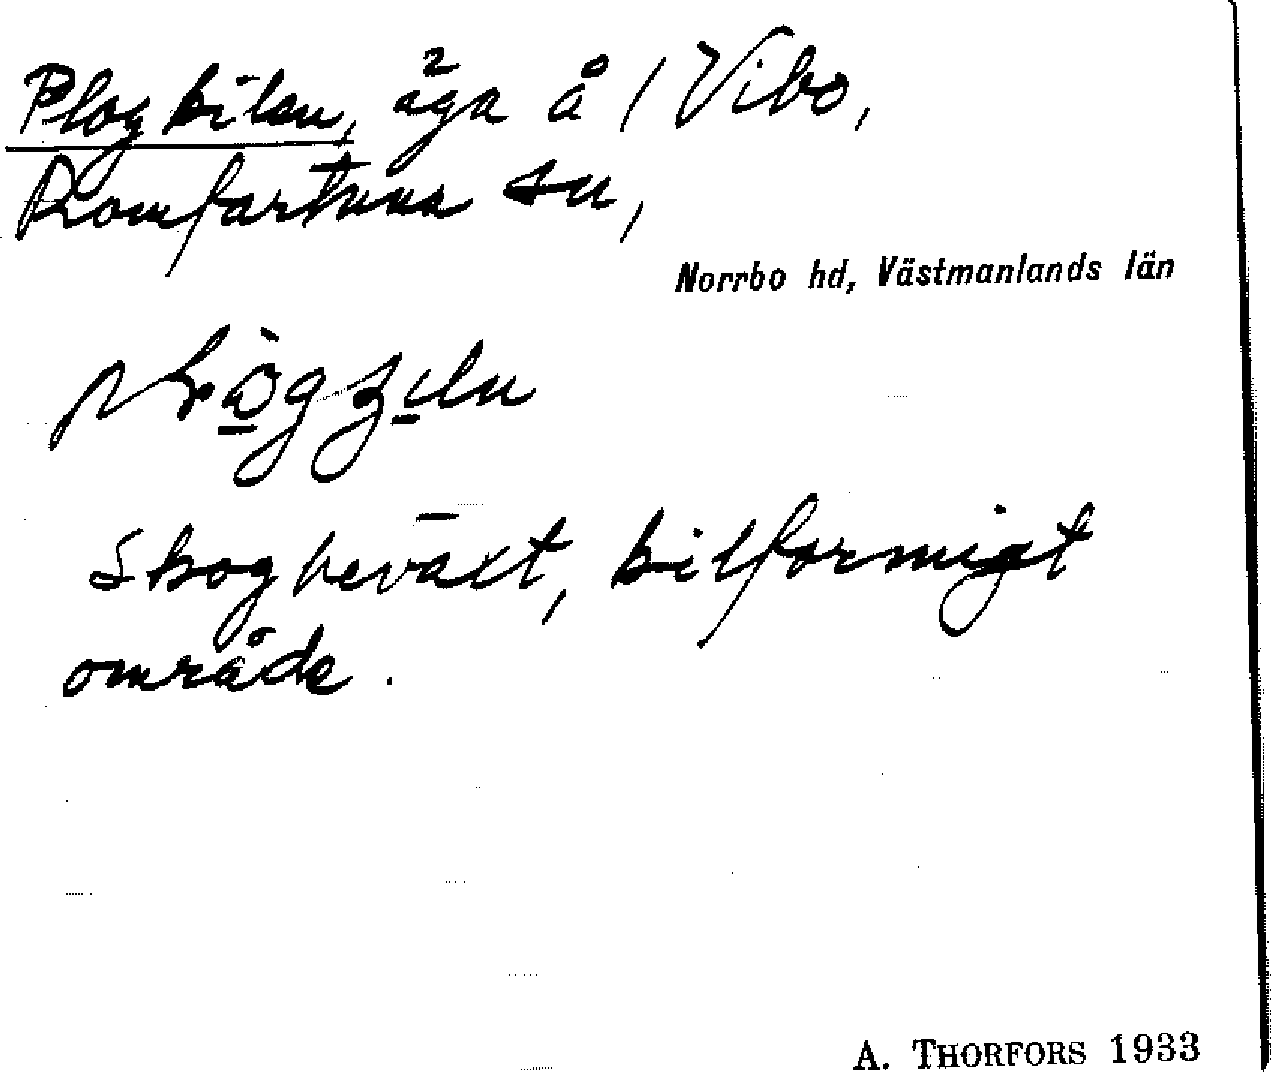 Plogkilen, äga å / Vibo,
Romfartuna sn,
Norrbo hd, Västmanlands län
Skogbeväxt, kilformigt
område.
A. THORFORS 1933